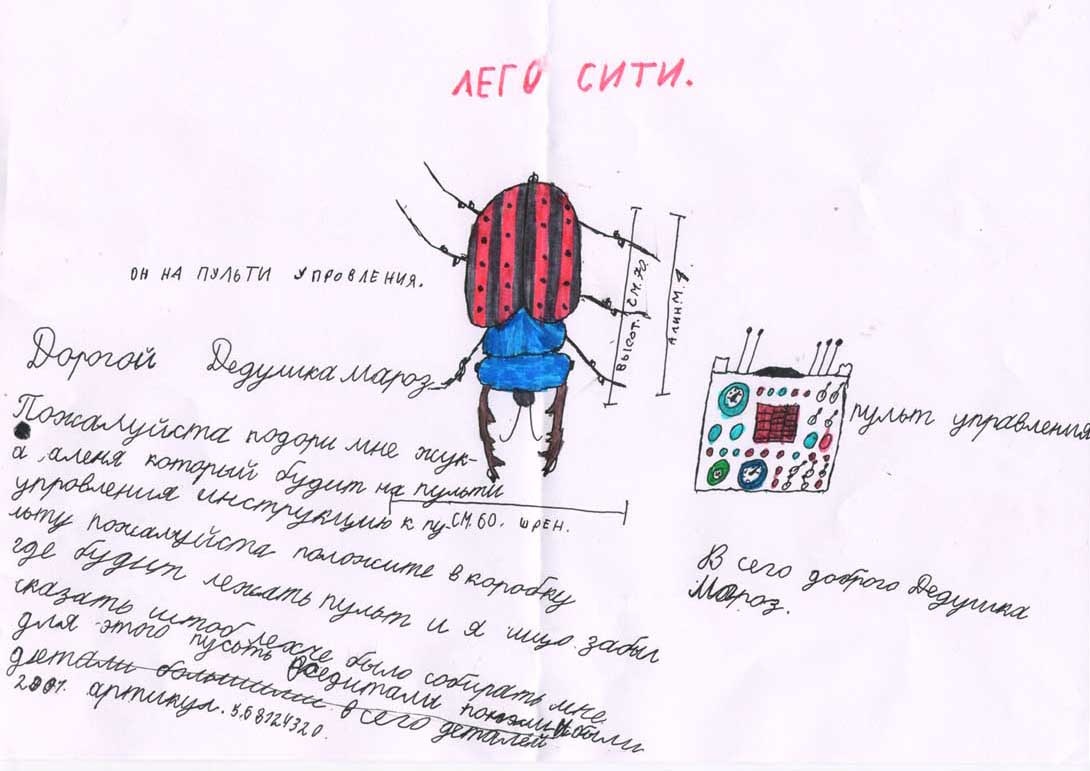 ЛЕГО СИТИ.
ОН НА ПУЛЬТИ УПРОВЛЕНИЯ.
ВЫСОТ. СМ.70.
ДЛИН М. 1.
Дорогой Дедушка Мароз
Пожалуйста подори мне жук-
а аленя который будит на пульти
управления инструкцию к пу-
СМ. 60. ШРЕН.
льту пожалуйста положите в коробку
где будит лежать пульт и я ищо забыл
сказать штоб легче было собирать мне
для этого пусоть все дитали были
дитали большими в сего деталей
2001. артикул.
пульт управления
В сего доброго Дедушка
Мароз.